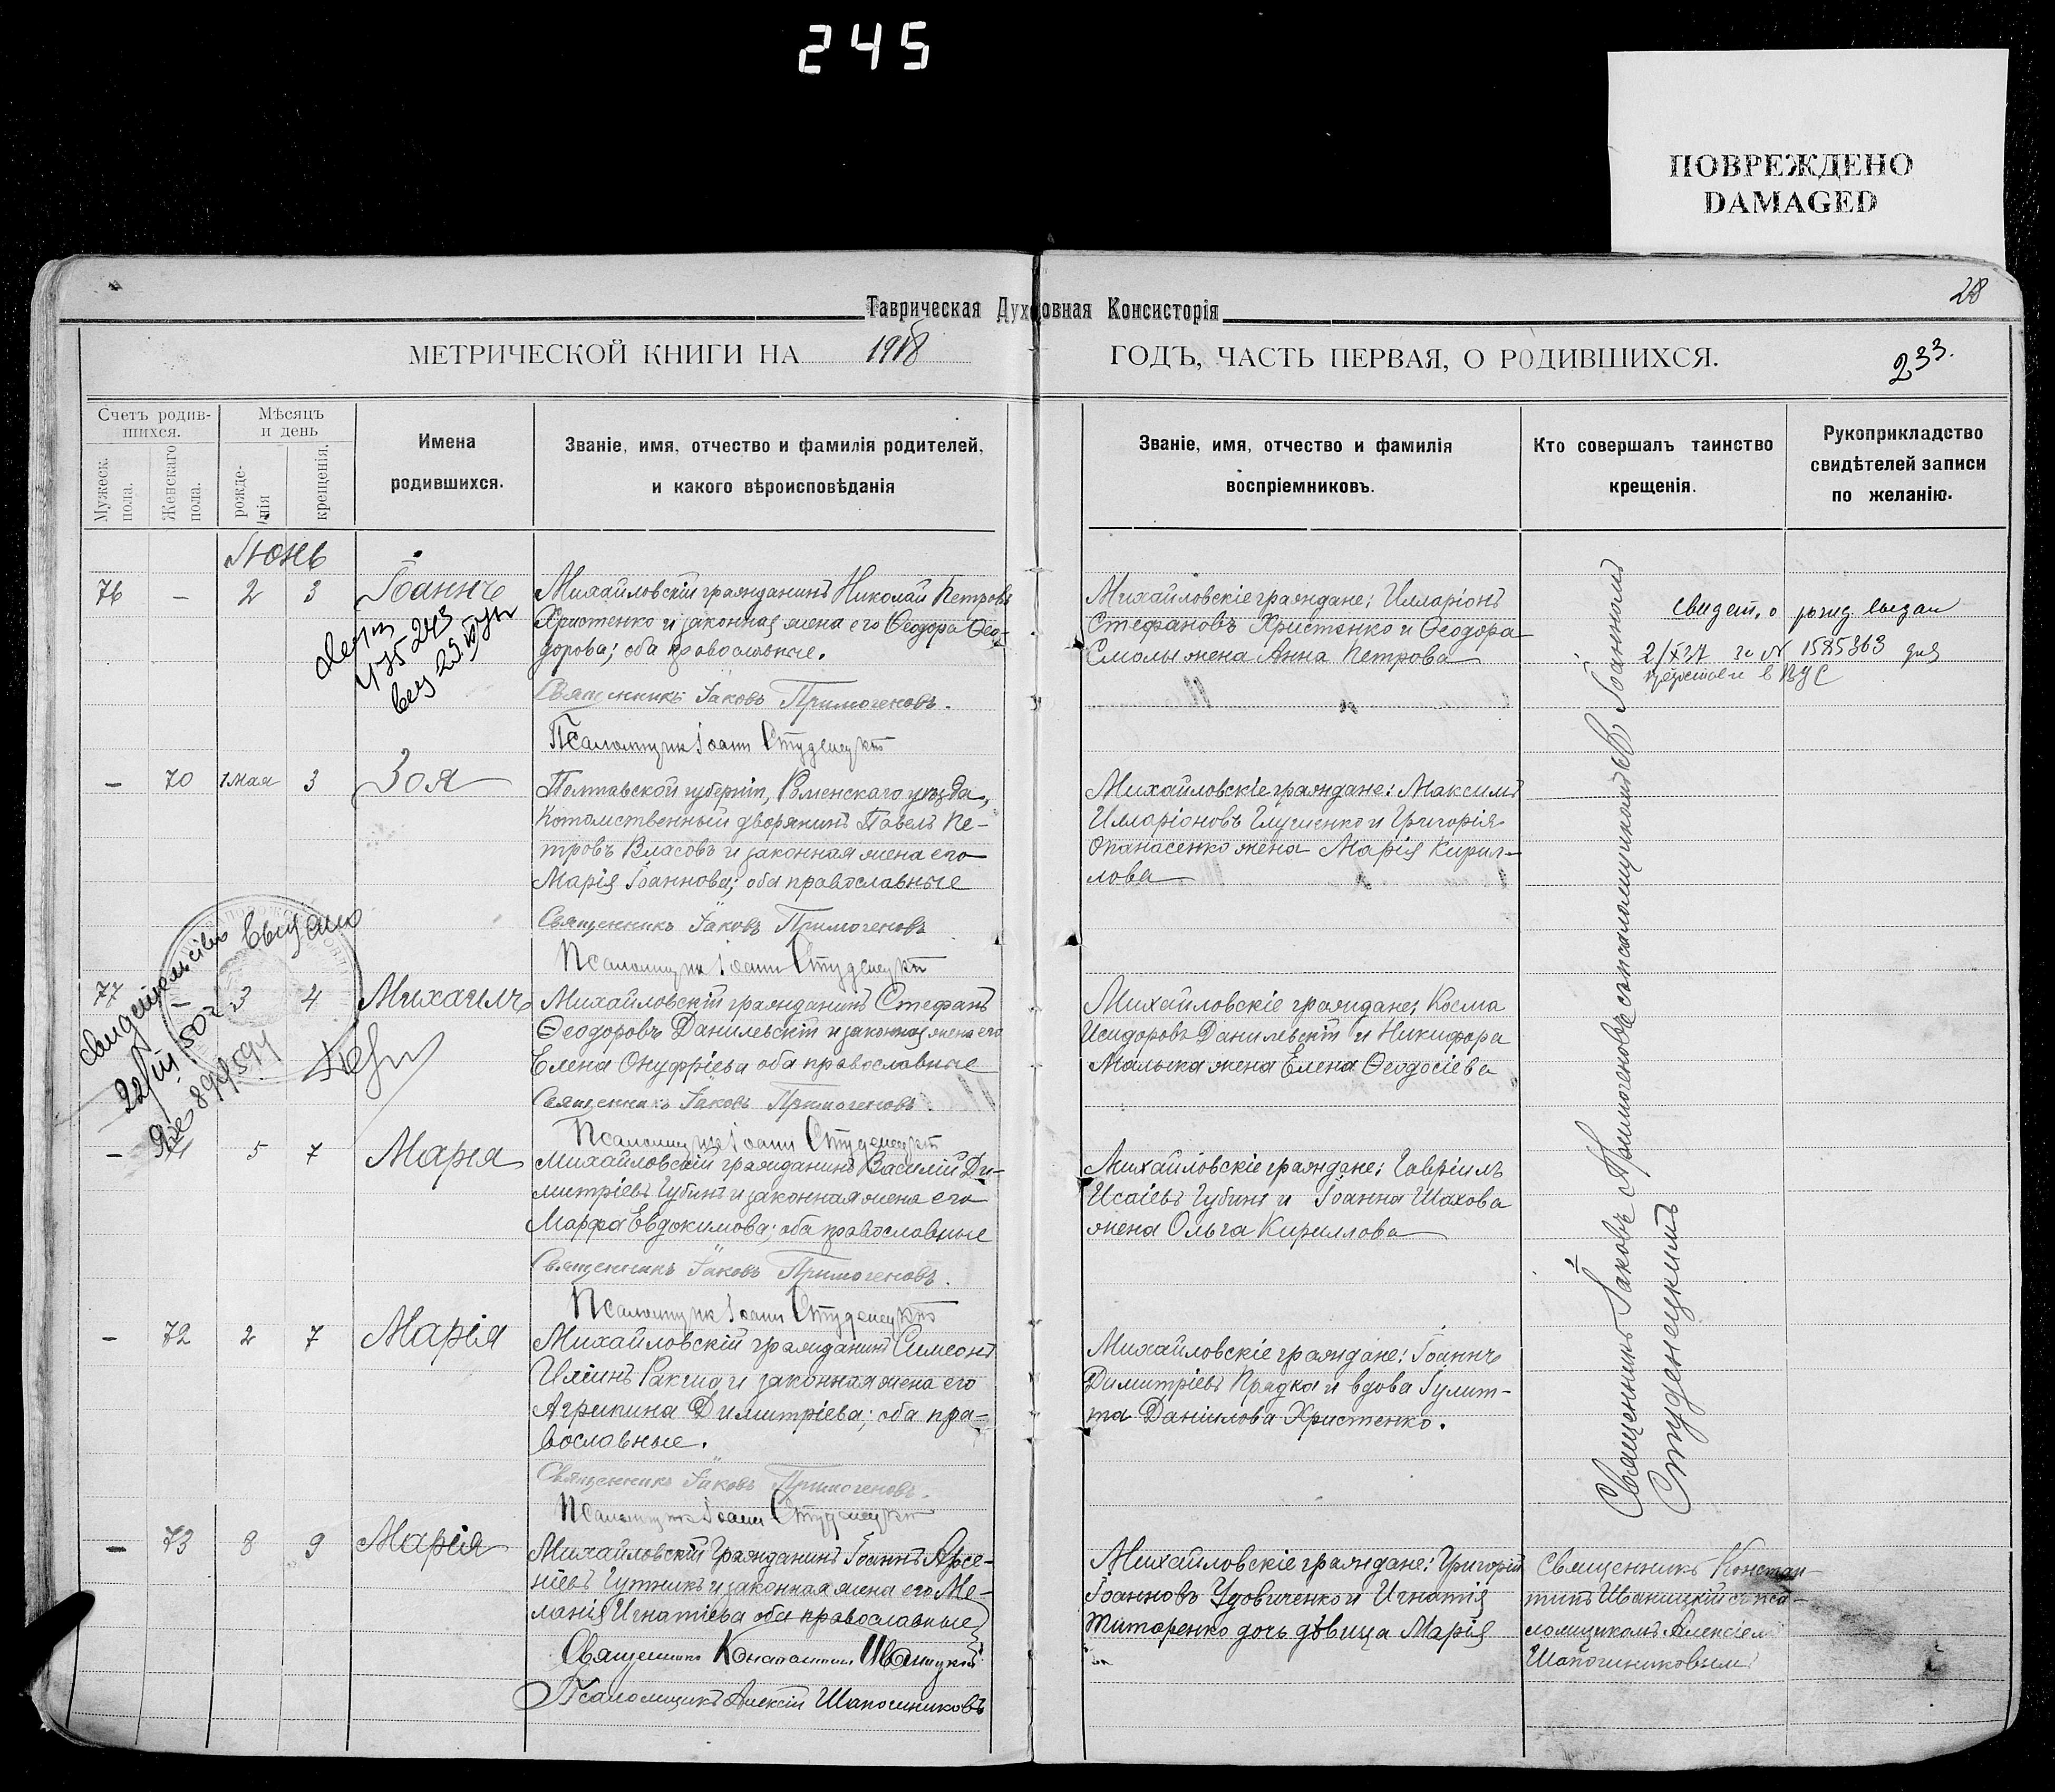 245
ПОВРЕЖДЕНО
DAMAGED
28
Таврическая Духовная Консисторія
МЕТРИЧЕСКОЙ КНИГИ НА 1918 ГОДЪ, ЧАСТЬ ПЕРВАЯ, О РОДИВШИХСЯ.
233.
Счетъ родив-
шихся.
Мужеск.
пола.
Женскаго
пола.
Мѣсяцъ
и день
рожде-
нія
крещенія.
Имена
родившихся.
Званіе, имя, отчество и фамилія родителей,
и какого вѣроисповѣданія
Званіе, имя, отчество и фамилія
воспріемниковъ.
Кто совершалъ таинство
крещенія.
Рукоприкладство
свидѣтелей записи
по желанію.
Іюнь
76 – 2 3 Іоаннъ
Михайловскій гражданинъ Николай Петровъ
Христенко и законная жена его Ѳеодора Ѳео-
дорова; оба православные.
Священникъ Іаковъ Примогеновъ.
Псаломщикъ Іоаннъ Студенецкій
Михайловскіе граждане: Илларіонъ
Стефановъ Христенко и Ѳеодора
Смолы жена Анна Петрова
Свидет. о рожд. выдан
2/X37 за № 1585363 для
– 70 1 Мая 3 Зоя
Полтавской губерніи, Роменскаго уѣзда,
Потомственный дворянинъ Павелъ Пе-
тровъ Власовъ и законная жена его
Марія Іоаннова; оба православные
Священникъ Іаковъ Примогеновъ
Псаломщикъ Іоаннъ Студенецкій
Михайловскіе граждане: Максимъ
Илларіоновъ Глущенко и Григорія
Опанасенко жена Марія Кирил-
лова
Свидетельство выдано
22/III 50
77 – 3 4 Михаилъ
Михайловскій гражданинъ Стефанъ
Ѳеодоровъ Данилевскій и законная жена его
Елена Онуфріева оба православные
Священникъ Іаковъ Примогеновъ
Псаломщикъ Іоаннъ Студенецкій
Михайловскіе граждане: Косма
Исидоровъ Данилевскій и Никифора
Малыка жена Елена Ѳеодосіева
– 71 5 7 Марія
Михайловскій гражданинъ Василій Ди-
митріевъ Губинъ и законная жена его
Марфа Евдокимова; оба православные
Священникъ Іаковъ Примогеновъ.
Псаломщикъ Іоаннъ Студенецкій
Михайловскіе граждане: Гавріилъ
Исаіевъ Губинъ и Іоанна Шахова
жена Ольга Кириллова
– 72 2 7 Марія
Михайловскій гражданинъ Симеонъ
Иліинъ Ракша и законная жена его
Агрипина Димитріева; оба пра-
вославные.
Священникъ Іаковъ Примогеновъ.
Псаломщикъ Іоаннъ Студенецкій
Михайловскіе граждане: Іоаннъ
Димитріевъ Прядка и вдова Іулит-
та Даніилова Христенко.
Священникъ Іаковъ Примогеновъ съ псаломщикомъ Іоанномъ
Студенецкимъ
– 73 8 9 Марія
Михайловскій Гражданинъ Іоаннъ Арсе-
ніевъ Гутникъ и законная жена его Ме-
ланія Игнатіева оба православные
Священникъ Константинъ Иваницкій
Псаломщикъ Алексій Шапошниковъ
Михайловскіе граждане: Григорій
Іоанновъ Удовиченко и Игнатія
Титаренко дочь дѣвица Марія
Священникъ Констан-
тинъ Иваницкій съ пса-
ломщикомъ Алексіемъ
Шапошниковымъ